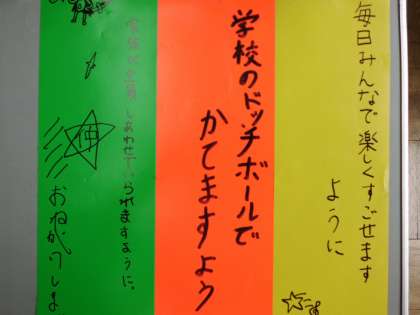 毎日みんなで楽しくすごせます
ように
学校のドッヂボールで
かてますよう
家族が全員しあわせでいられますように。
神
おねがいしま